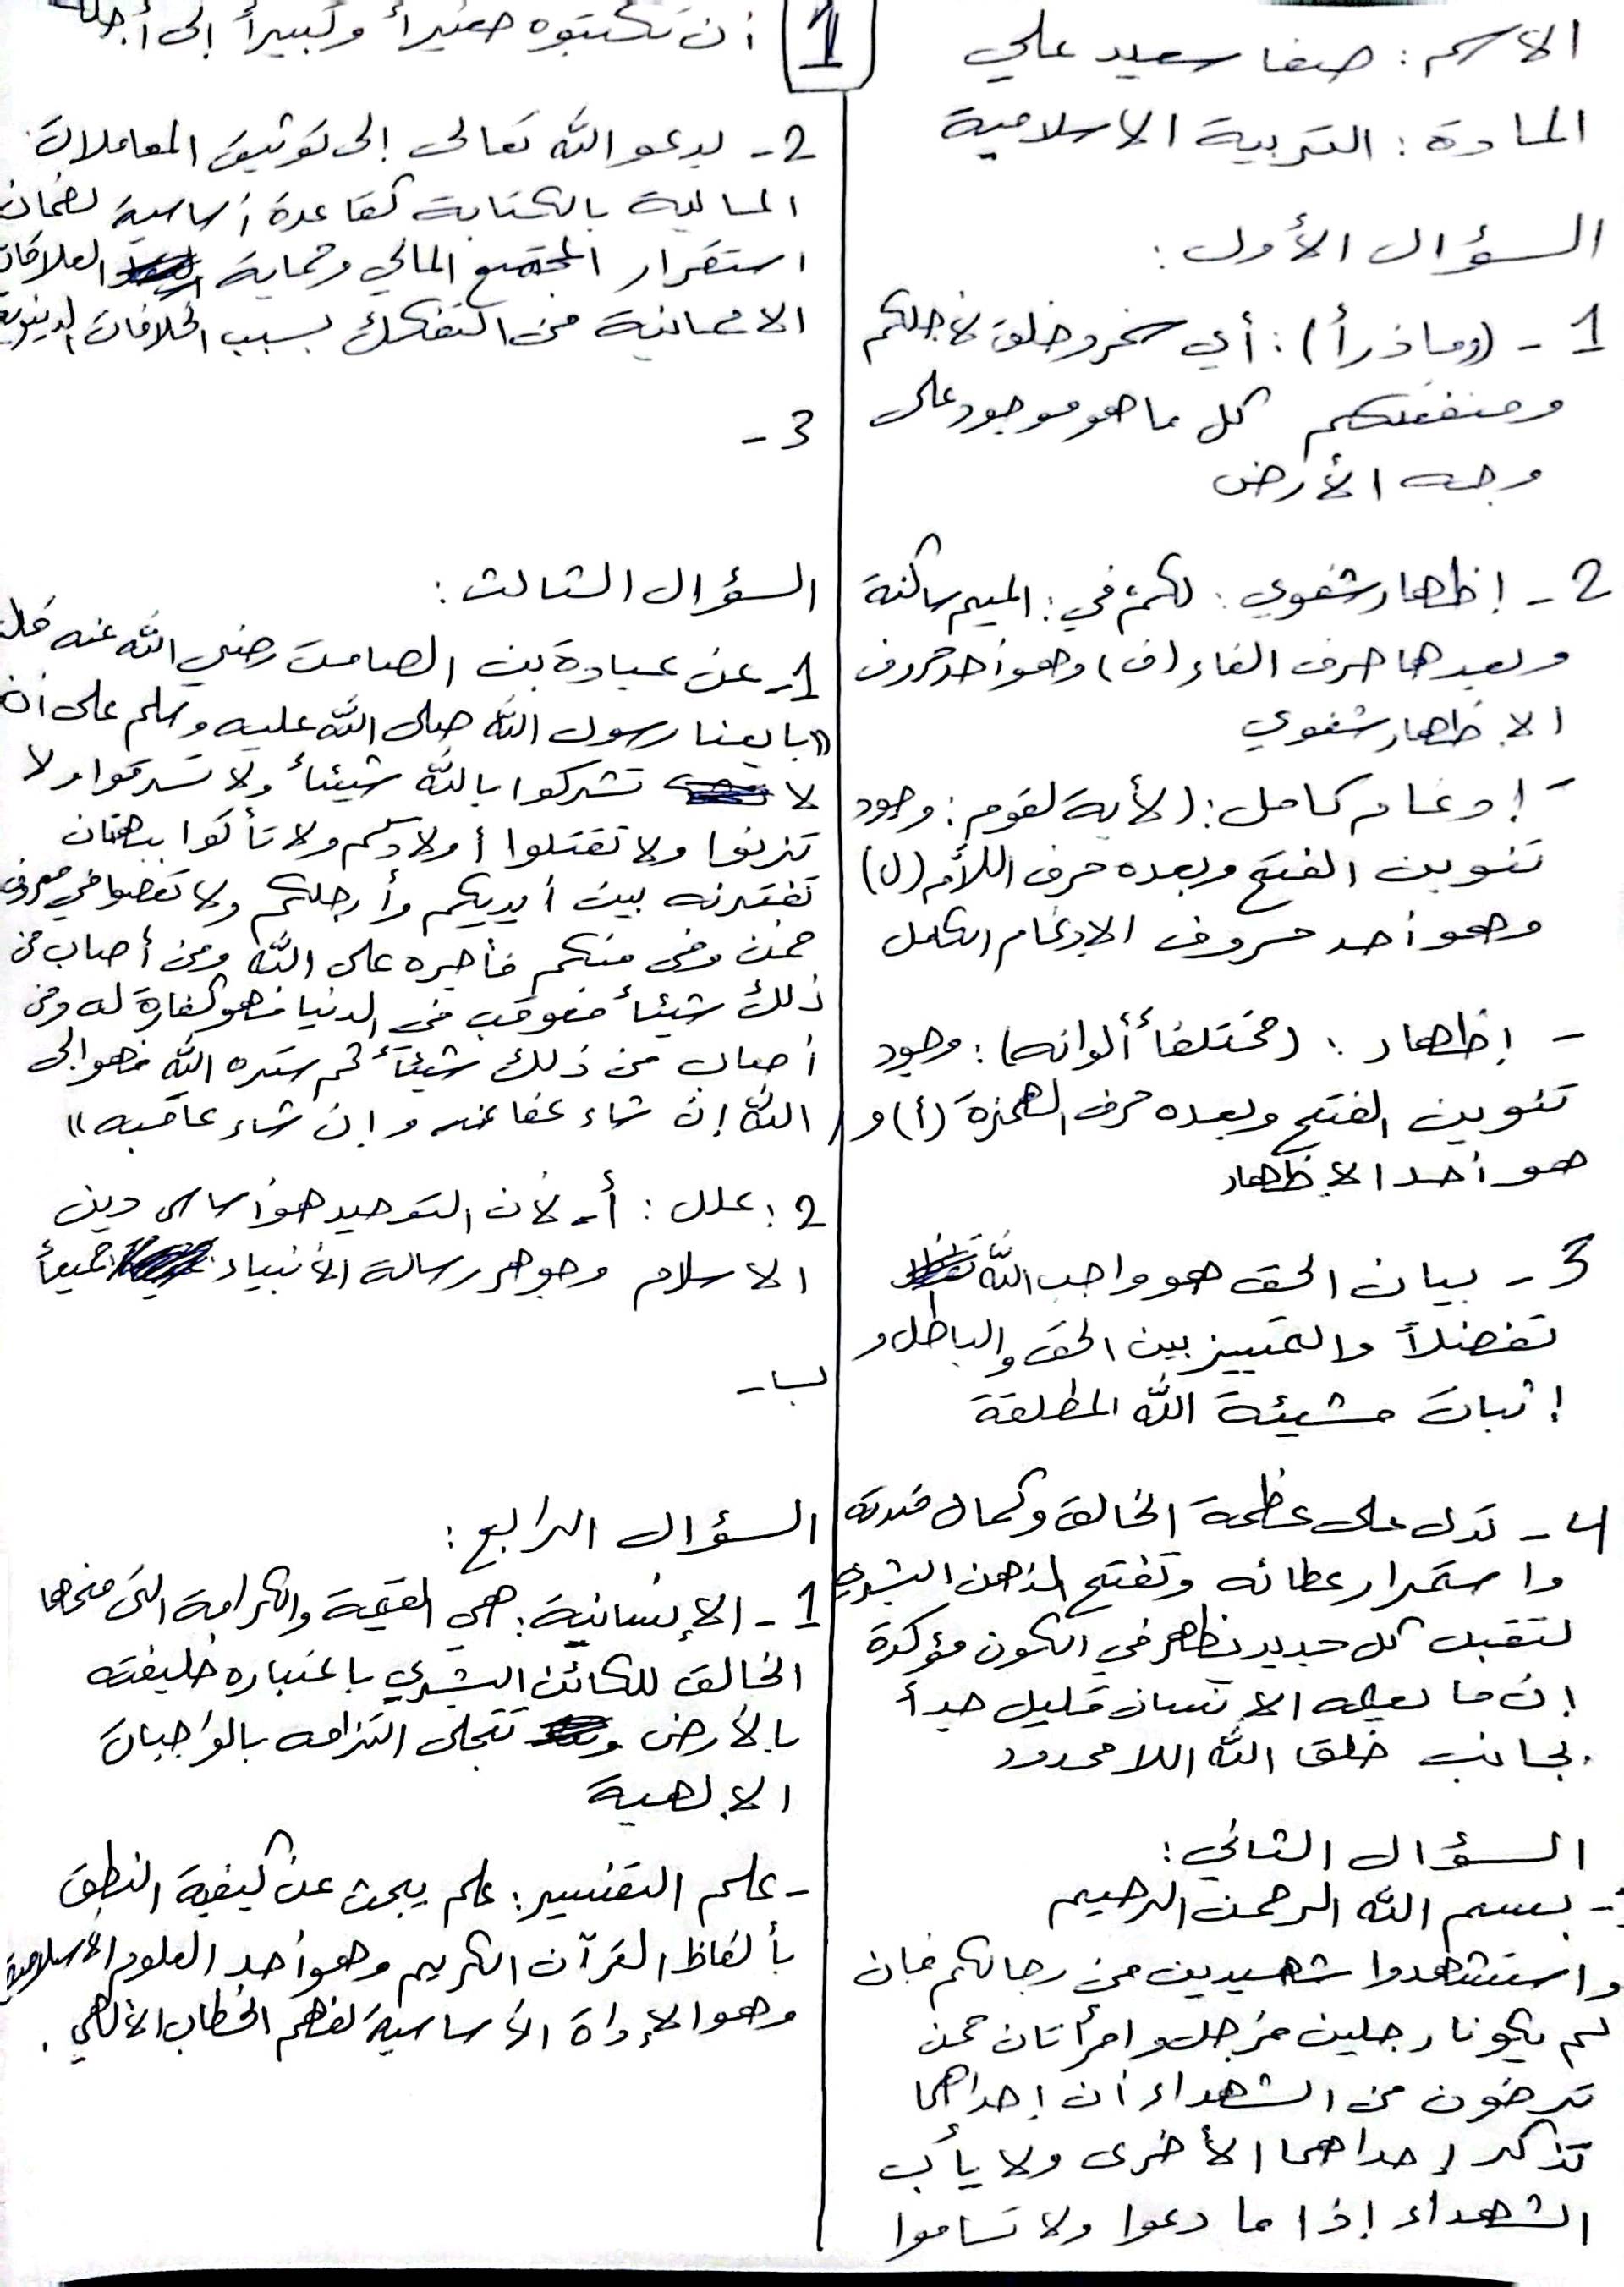 الاسم : صفا سعيد علي
المادة : التربية الاسلامية
السؤال الأول :
1 - (وما ذرأ) : أي سخر وخلق لأجلكم
ومنفعتكم كل ما هو موجود على
وجه الأرض
2 - إظهار شفوي : لكم في : الميم ساكنة
وبعدها حرف الفاء (ف) وهو أحد حروف
الإظهار شفوي
- إدغام كامل : (لأية لقوم : وجود
تنوين الفتح وبعده حرف اللأم (ل)
وهو أحد حروف الإدغام الكامل
- إظهار : (مختلفاً ألوانه) : وجود
تنوين الفتح وبعده حرف الهمزة (أ) و
هو أحد الإظهار
3 - بيان الحق هو واجب الله
تفضلاً والتمييز بين الحق والباطل و
إثبات مشيئة الله المطلقة
4 - تدل على عظمة الخالق وكمال قدرته
واستمرار عطائه وتفتح الذهن البشري
لتقبل كل جديد يظهر في الكون مؤكدة
إن ما يعلمه الإنسان قليل جداً
بجانب خلق الله اللا محدود
السؤال الثاني :
1 - بسم الله الرحمن الرحيم
واستشهدوا شهيدين من رجالكم فإن
لم يكونا رجلين فرجل وامرأتان ممن
ترضون من الشهداء أن إحداهما
تذكر إحداهما الأخرى ولا يأب
الشهداء إذا ما دعوا ولا تساموا
1
أن تكتبوه صغيراً وكبيراً إلى أجله
2 - يدعو الله تعالى إلى توثيق المعاملات
المالية بالكتابة كقاعدة أساسية لضمان
استقرار المجتمع المالي وحماية العلاقات
الانسانية من التفكك بسبب الخلافات الدنيوية
3 -
السؤال الثالث :
1 - عن عبادة بن الصامت رضي الله عنه قال
«بايعنا رسول الله صلى الله عليه وسلم على أن
لا تشركوا بالله شيئاً ولا تسرقوا ولا
تزنوا ولا تقتلوا أولادكم ولا تأتوا ببهتان
تفترنه بين أيديكم وأرجلكم ولا تعصوا في معروف
فمن وفى منكم فأجره على الله ومن أصاب من
ذلك شيئاً فعوقب في الدنيا فهو كفارة له ومن
أصاب من ذلك شيئاً ثم ستره الله فهو إلى
الله إن شاء عفا عنه وإن شاء عاقبه»
2 : علل : أ - لأن التوحيد هو أساس دين
الاسلام وجوهر رسالة الأنبياء جميعاً
ب -
السؤال الرابع :
1 - الإنسانية : هي القيمة والكرامة التي منحها
الخالق للكائن البشري باعتباره خليفته
بالأرض تتجلى التزامه بالواجبات
الإلهية
- علم التفسير : علم يبحث عن كيفية النطق
بألفاظ القرآن الكريم وهو أحد العلوم الأسلامية
وهو الإداة الأساسية لفهم الخطاب الألهي .